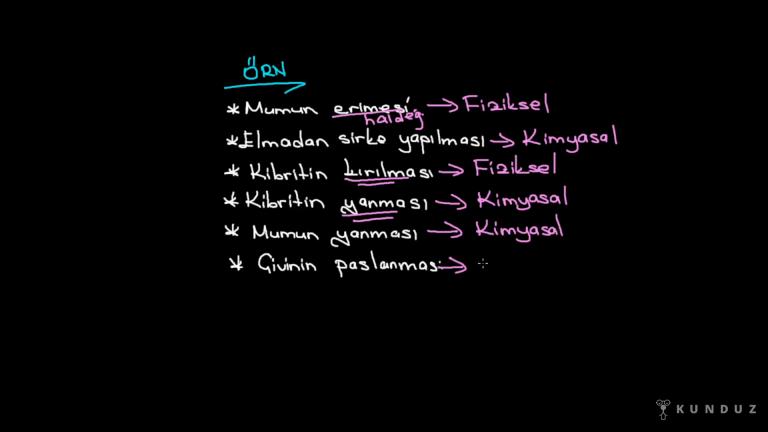 ÖRN
* Mumun erimesi → Fiziksel
haldeğ
* Elmadan sirke yapılması → Kimyasal
* Kibritin kırılması → Fiziksel
* Kibritin yanması → Kimyasal
* Mumun yanması → Kimyasal
* Çivinin paslanması →
KUNDUZ